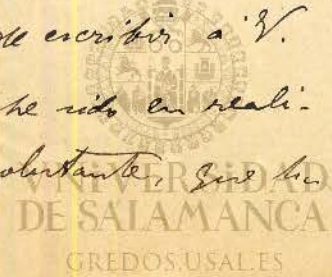 de escribir a V.
he sido en reali-
que ha
VNiVERSiDAD
DE SALAMANCA
GREDOS.USAL.ES